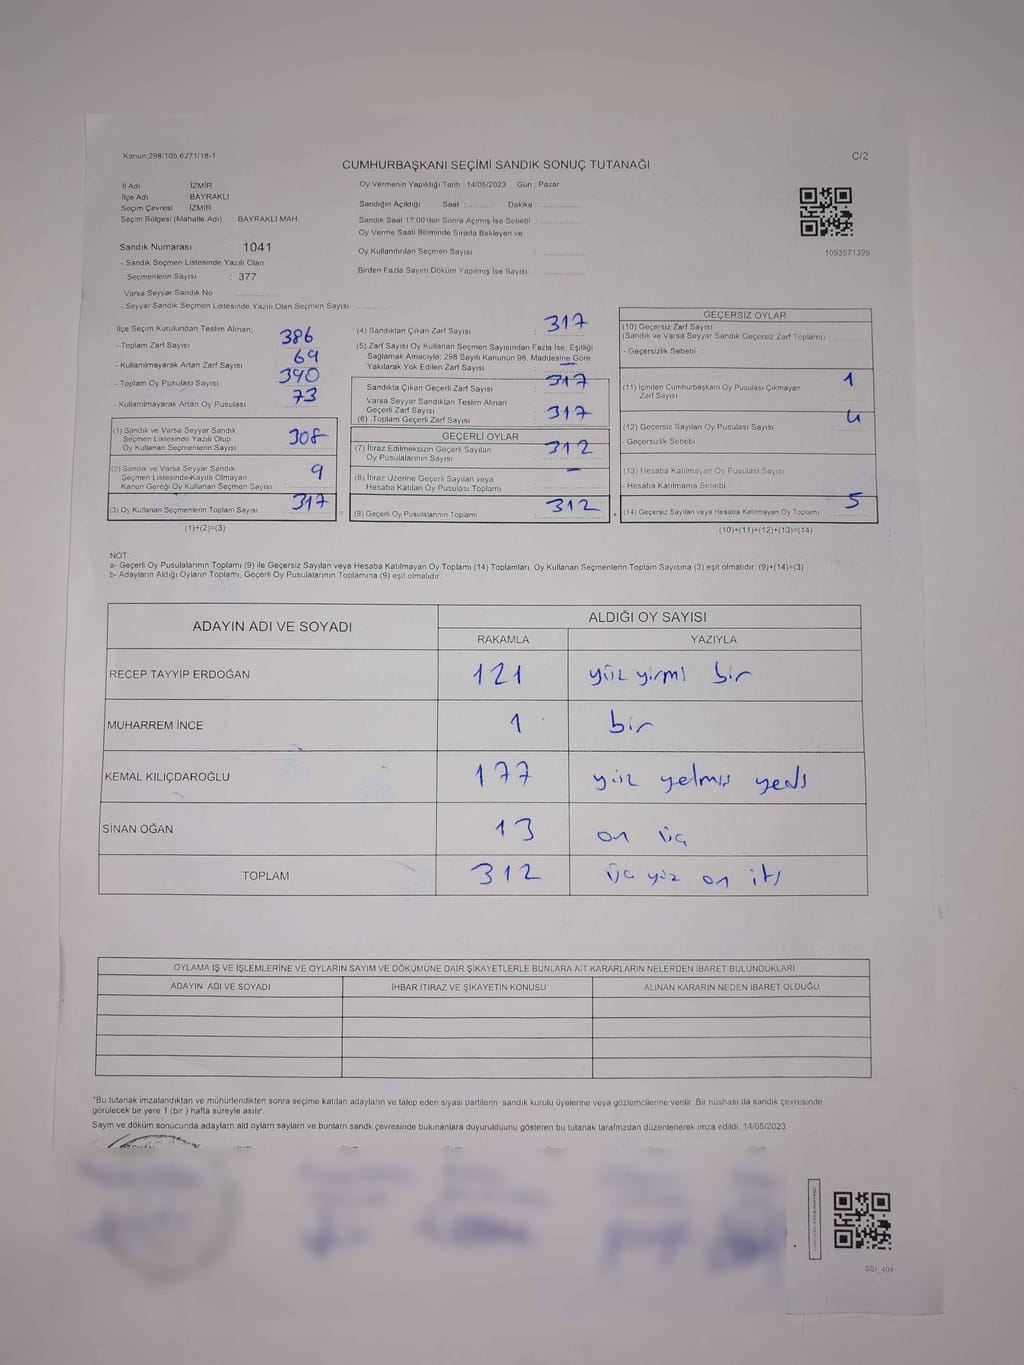 Kanun;298/105;6271/18-1
C/2
CUMHURBAŞKANI SEÇİMİ SANDIK SONUÇ TUTANAĞI
İl Adı : İZMİR
İlçe Adı : BAYRAKLI
Seçim Çevresi : İZMİR
Seçim Bölgesi (Mahalle Adı) : BAYRAKLI MAH.
Sandık Numarası : 1041
- Sandık Seçmen Listesinde Yazılı Olan
Seçmenlerin Sayısı : 377
Varsa Seyyar Sandık No :
- Seyyar Sandık Seçmen Listesinde Yazılı Olan Seçmen Sayısı :
Oy Vermenin Yapıldığı Tarih : 14/05/2023 Gün : Pazar
Sandığın Açıldığı Saat : Dakika :
Sandık Saat 17:00'den Sonra Açılmış İse Sebebi :
Oy Verme Saati Bitiminde Sırada Bekleyen ve
Oy Kullandırılan Seçmen Sayısı :
Birden Fazla Sayım Döküm Yapılmış İse Sayısı :
1093571395
İlçe Seçim Kurulundan Teslim Alınan;
- Toplam Zarf Sayısı 386
- Kullanılmayarak Artan Zarf Sayısı 69
- Toplam Oy Pusulası Sayısı 390
- Kullanılmayarak Artan Oy Pusulası 73
(1) Sandık ve Varsa Seyyar Sandık
Seçmen Listesinde Yazılı Olup
Oy Kullanan Seçmenlerin Sayısı 308
(2) Sandık ve Varsa Seyyar Sandık
Seçmen Listesinde Kayıtlı Olmayan
Kanun Gereği Oy Kullanan Seçmen Sayısı 9
(3) Oy Kullanan Seçmenlerin Toplam Sayısı 317
(1)+(2)=(3)
(4) Sandıktan Çıkan Zarf Sayısı : 317
(5) Zarf Sayısı Oy Kullanan Seçmen Sayısından Fazla İse, Eşitliği
Sağlamak Amacıyla; 298 Sayılı Kanunun 98. Maddesine Göre
Yakılarak Yok Edilen Zarf Sayısı : —
Sandıkta Çıkan Geçerli Zarf Sayısı 317
Varsa Seyyar Sandıktan Teslim Alınan
Geçerli Zarf Sayısı
(6) Toplam Geçerli Zarf Sayısı 317
GEÇERLİ OYLAR
(7) İtiraz Edilmeksizin Geçerli Sayılan
Oy Pusulalarının Sayısı 312
(8) İtiraz Üzerine Geçerli Sayılan veya
Hesaba Katılan Oy Pusulası Toplamı —
(9) Geçerli Oy Pusulalarının Toplamı 312
GEÇERSİZ OYLAR
(10) Geçersiz Zarf Sayısı
(Sandık ve Varsa Seyyar Sandık Geçersiz Zarf Toplamı)
- Geçersizlik Sebebi :
(11) İçinden Cumhurbaşkanı Oy Pusulası Çıkmayan
Zarf Sayısı 1
(12) Geçersiz Sayılan Oy Pusulası Sayısı 4
- Geçersizlik Sebebi
(13) Hesaba Katılmayan Oy Pusulası Sayısı
- Hesaba Katılmama Sebebi
(14) Geçersiz Sayılan veya Hesaba Katılmayan Oy Toplamı 5
(10)+(11)+(12)+(13)=(14)
NOT:
a- Geçerli Oy Pusulalarının Toplamı (9) ile Geçersiz Sayılan veya Hesaba Katılmayan Oy Toplamı (14) Toplamları, Oy Kullanan Seçmenlerin Toplam Sayısına (3) eşit olmalıdır. (9)+(14)=(3)
b- Adayların Aldığı Oyların Toplamı, Geçerli Oy Pusulalarının Toplamına (9) eşit olmalıdır.
ADAYIN ADI VE SOYADI
ALDIĞI OY SAYISI
RAKAMLA YAZIYLA
RECEP TAYYİP ERDOĞAN 121 yüz yirmi bir
MUHARREM İNCE 1 bir
KEMAL KILIÇDAROĞLU 177 yüz yetmiş yedi
SİNAN OĞAN 13 on üç
TOPLAM 312 üç yüz on iki
OYLAMA İŞ VE İŞLEMLERİNE VE OYLARIN SAYIM VE DÖKÜMÜNE DAİR ŞİKAYETLERLE BUNLARA AİT KARARLARIN NELERDEN İBARET BULUNDUKLARI
ADAYIN ADI VE SOYADI İHBAR İTİRAZ VE ŞİKAYETİN KONUSU ALINAN KARARIN NEDEN İBARET OLDUĞU
*Bu tutanak imzalandıktan ve mühürlendikten sonra seçime katılan adayların ve talep eden siyasi partilerin sandık kurulu üyelerine veya gözlemcilerine verilir. Bir nüshası da sandık çevresinde
görülecek bir yere 1 (bir ) hafta süreyle asılır.
Sayım ve döküm sonucunda adayların ald oyların sayları ve bunların sandk çevresinde bulunanlara duyurulduunu gösteren bu tutanak tarafmzdan düzenlenerek imza edildi. 14/05/2023
SSI_404